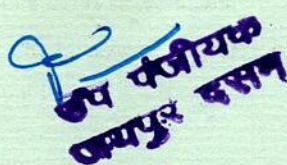 उप पंजीयक
जयपुर दसम्